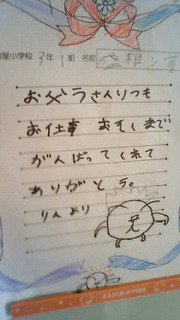 小学校 3年 1組 名前
お父うさんいつも
お仕事 おそくまで
がんばってくれて
ありがとう。
りんより
HELLO KITTY